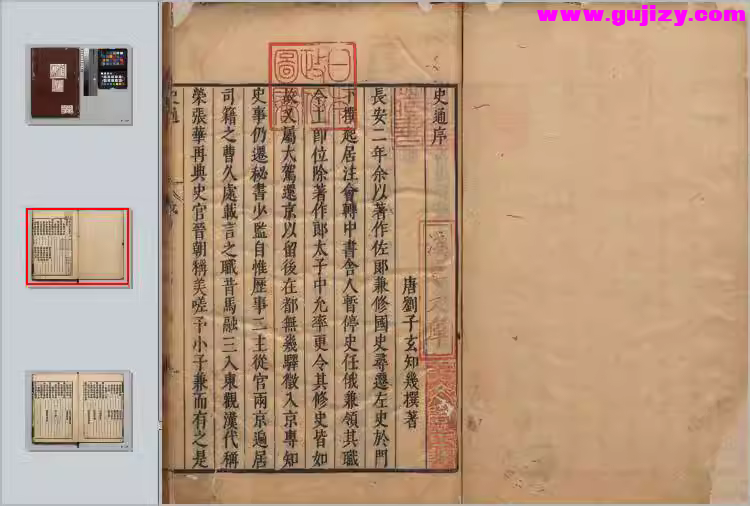 www.gujizy.com
史通序
唐劉子玄知幾撰著
長安二年余以著作佐郎兼修國史尋遷左史於門
下撰起居注會轉中書舍人暫停史任俄兼領其職
今上即位除著作郎太子中允率更令其修史皆如
故又屬大駕還京以留後在都無幾驛徵入京專知
史事仍遷秘書少監自惟歷事二主從官兩京遍居
司籍之曹久處載言之職昔馬融三入東觀漢代稱
榮張華再典史官晉朝稱美嗟予小子兼而有之是